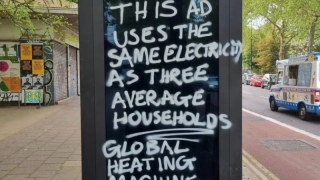 THIS AD
USES THE
SAME ELECTRICITY
AS THREE
AVERAGE
HOUSEHOLDS
GLOBAL
HEATING
MACHINE